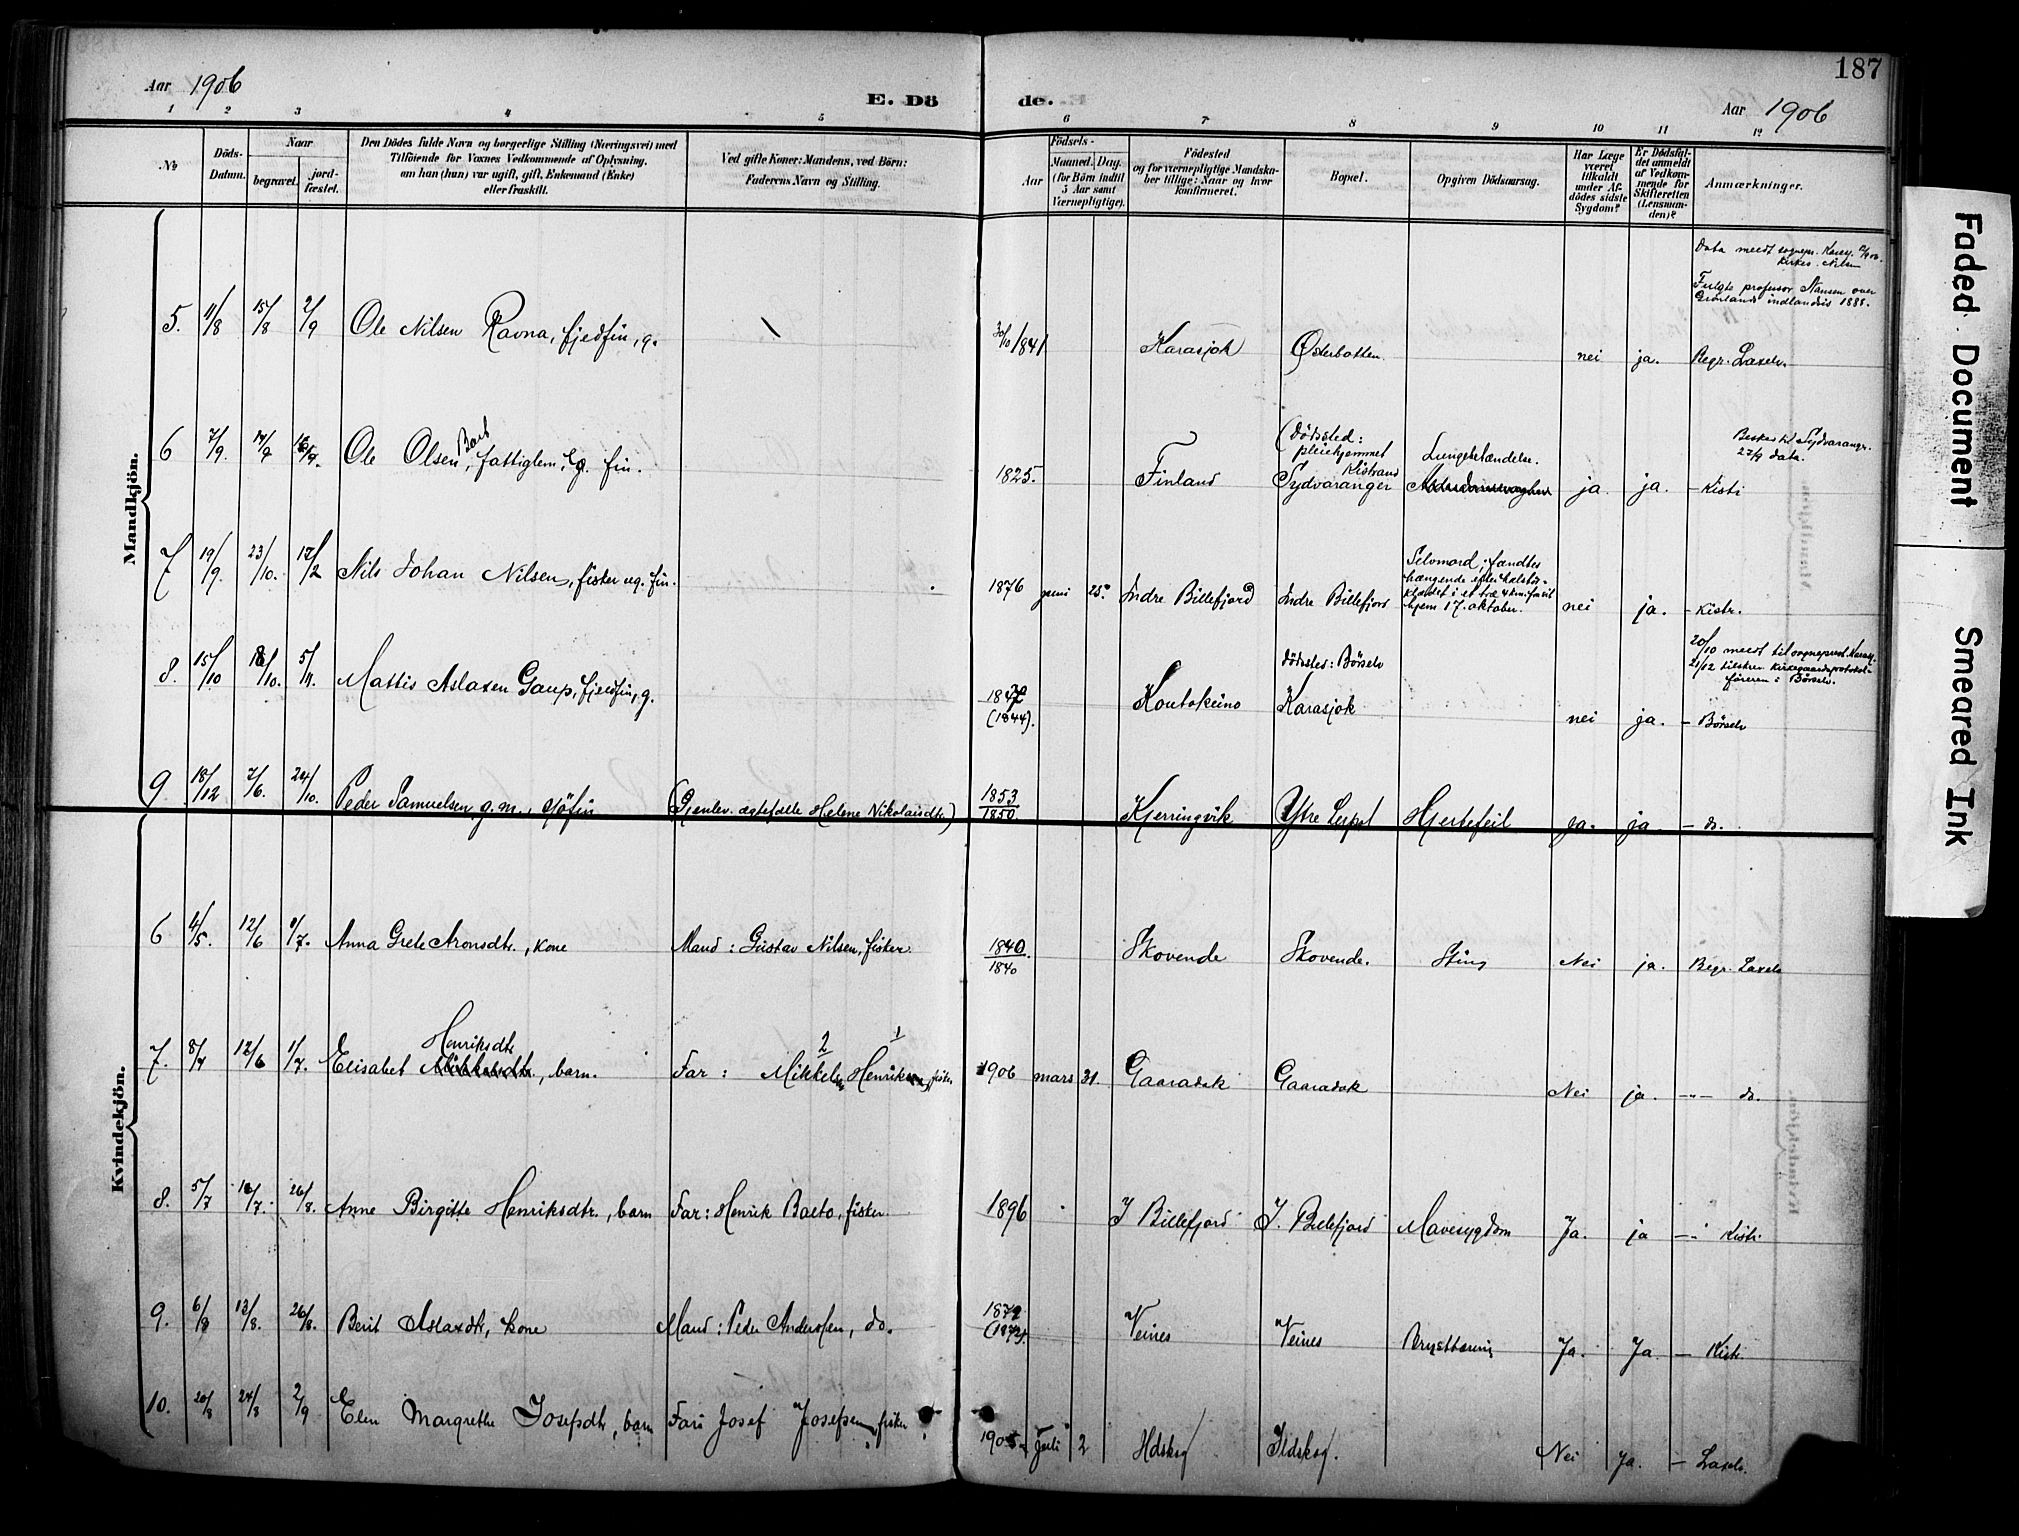 187
Aar 1906
E. Dö
de.
Aar 1906
1 2 3 4 5 6 7 8 9 10 11 12
No
Döds-Datum.
Naar
begravet.
jord-fæstet.
Den Dödes fulde Navn og borgerlige Stilling (Næringsvei) med
Tilföiende for Voxnes Vedkommende af Oplysning,
om han (hun) var ugift, gift, Enkemand (Enke)
eller fraskilt.
Ved gifte Koner: Mandens, ved Börn:
Faderens Navn og Stilling.
Födsels-
Aar
Maaned. Dag.
(for Börn indtil
5 Aar samt
Værnepligtige).
Födested
og for værnepligtige Mandska-
ber tillige: Naar og hvor
konfirmeret.
Bopæl.
Opgiven Dödsaarsag.
Har Læge
været
tilkaldt
under Af-
dödes sidste
Sygdom?
Er Dödsfal-
det anmeldt
af Vedkom-
mende for
Skifteretten
(Lensman-
den)?
Anmærkninger.
Mandkjön.
Data meldt sognepr. Karasj.
Fulgte professor Nansen over
Grønlands indlandsis 1888.
5. 11/8 15/8 2/9 Ole Nilsen Ravna, fjeldfin, g. 30/10 1841 Karasjok Østerbotten nei ja. Begr. Laxelv.
(Dødssted:
pleiehjemmet
Kistrand
Lungebetændelse.
Sydvaranger.
22/9 data.
6 7/9. Ole Olsen Bast, fattiglem, fin. 1825. Finland Sydvaranger ja ja. - Kistr
Selvmord; fandtes
hængende efter halstør-
klædet i et træ 4 km. fra sit
hjem 17. oktober.
7 19/9. 23/10. 12/2 Nils Johan Nilsen, fisker ug. fin. 1876 juni 25. Indre Billefjord Indre Billefjord nei ja. - Kistr.
dødssted: Børselv
20/10 meldt til sogneprest Karasj.
21/12 tilskrev kirkegaardsprotokol-
føreren i Børselv.
8. 15/10 18/10. 5/11. Mattis Aslaksen Gaup, fjeldfin, g. 1842 (1844). Koutokeino Karasjok nei ja. - Børselv
9 18/12 7/6. 24/10. Peder Samuelsen g. m., sjöfin (Gjenlev. ægtefælle Helene Nikolaisdtr) 1853 1850 Kjerringvik Ytre Leirpol Hjertefeil ja. ja - do.
Kvindekjön.
6 4/5. 12/6 1/7. Anna Grete Aronsdtr., kone Mand: Gustav Nilsen, fisker. 1840. 1840 Skovende Skovende. Sting Nei ja. Begr. Laxelv
Henriksdtr
2 1
7. 8/4 12/6 1/7. Elisabet Mikkelsdtr., barn. Far: Mikkelsen Henriksen, fisker 1906 mars 31. Gaaradak Gaaradak Nei ja. - do.
8. 5/7 16/7. 26/8. Anne Birgitte Henriksdtr., barn Far: Henrik Baeto, fisker 1896 I Billefjord I. Billefjord Mavesygdom Ja. ja - Kistr.
9. 6/8 13/8. 26/8. Berit Aslaxdtr, kone Mand: Peder Andersen, do. 1872 (1873). Veines Veines Brysttæring Ja. Ja. - Kistr.
10. 20/8 24/8 2/9 Elen Margrethe Josefsdtr, barn Far: Josef Josefsen, fisker 1905 Juli 2 Ildskog Ildskog. Nei Ja. - Laxelv.
Faded Document
Smeared Ink